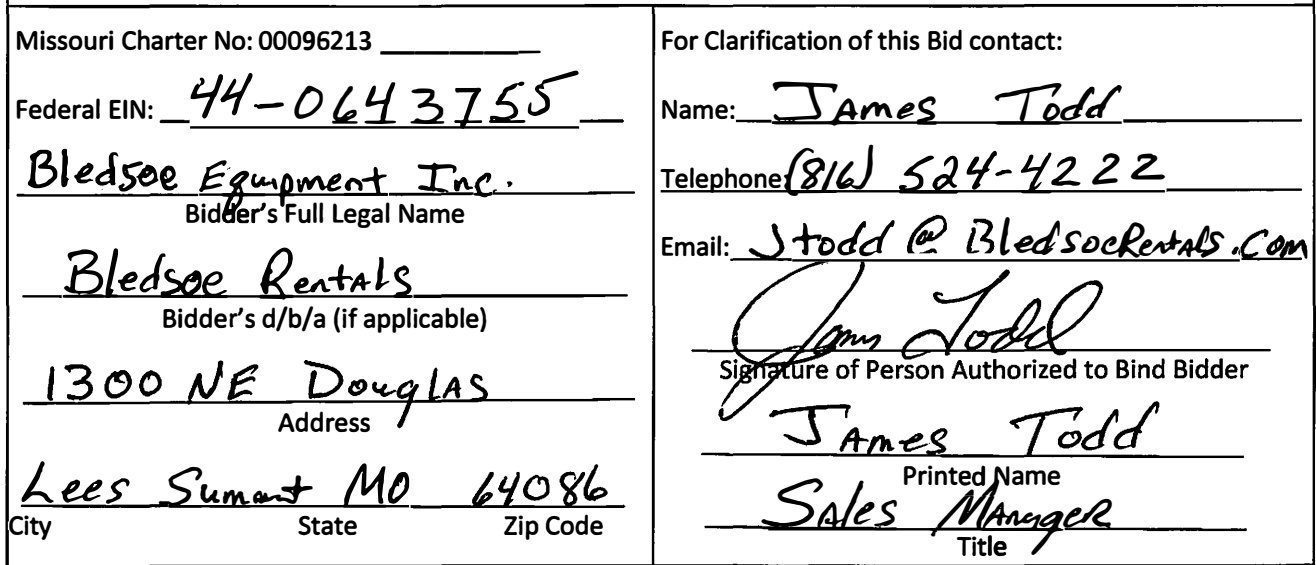 Missouri Charter No: 00096213
Federal EIN: 44-0643755
Bledsoe Equipment Inc.
Bidder's Full Legal Name
Bledsoe Rentals
Bidder's d/b/a (if applicable)
1300 NE Douglas
Address
Lees Summit MO 64086
City State Zip Code
For Clarification of this Bid contact:
Name: James Todd
Telephone: (816) 524-4222
Email: Jtodd@BledsoeRentals.com
James Todd
Signature of Person Authorized to Bind Bidder
James Todd
Printed Name
Sales Manager
Title